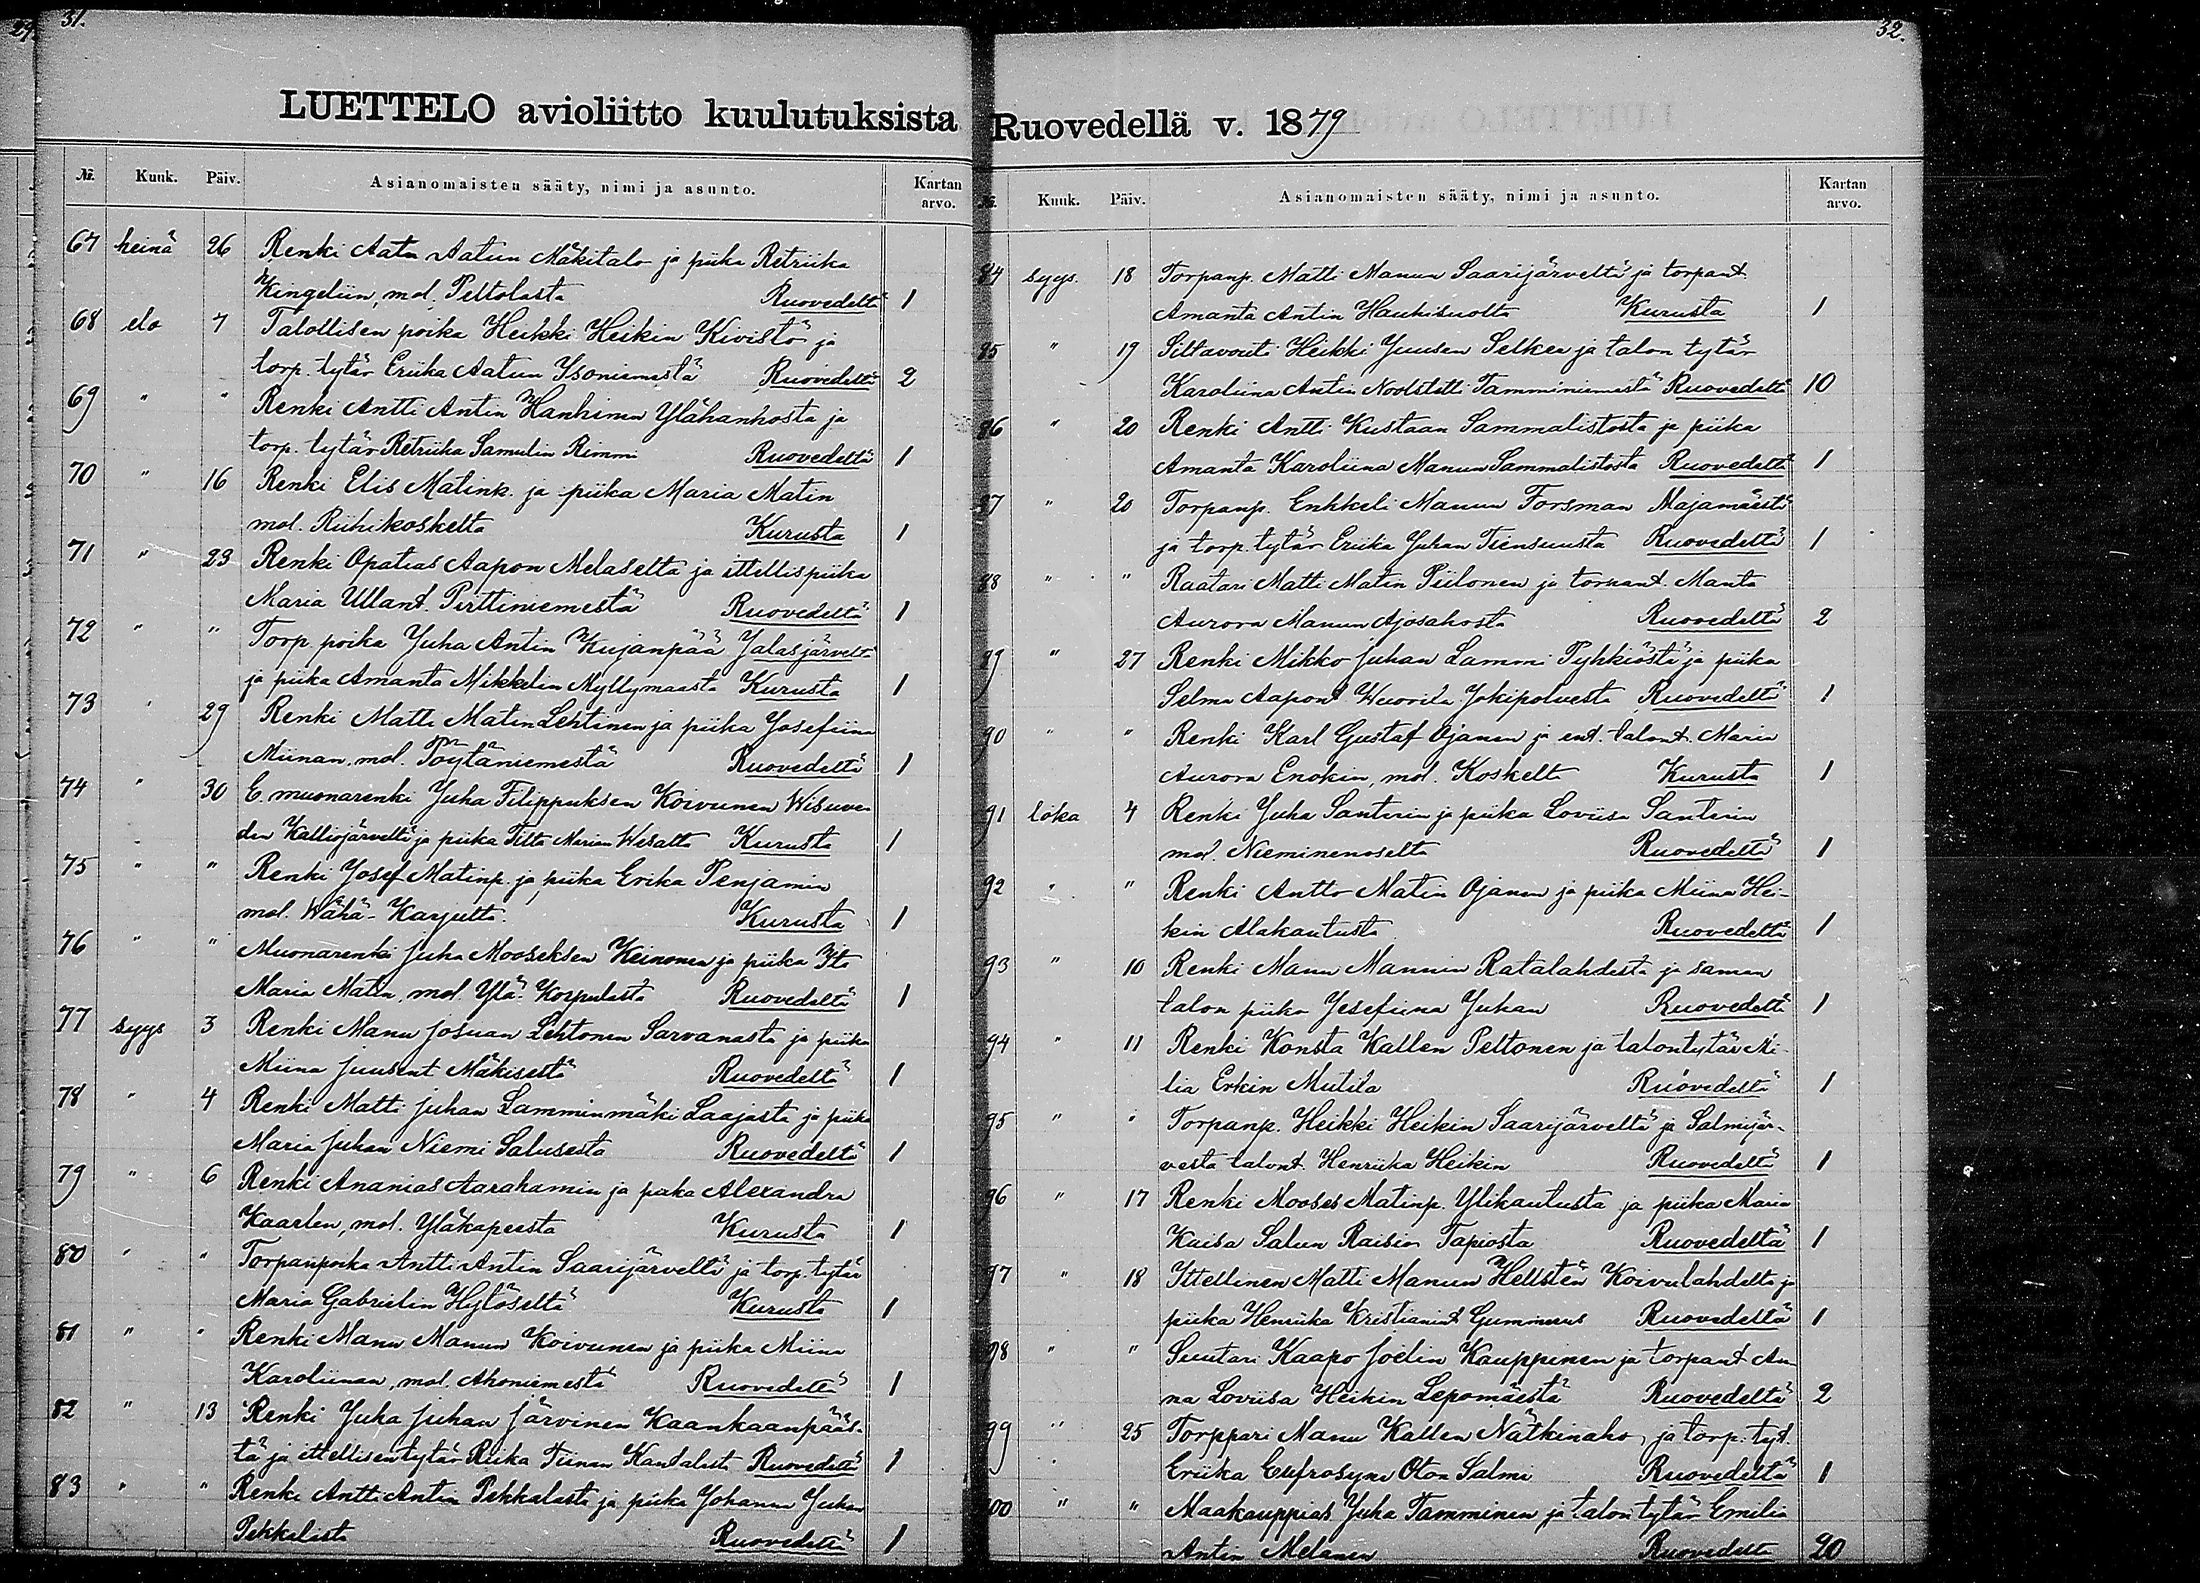 31.
LUETTELO avioliitto kuulutuksista
№. Kuuk. Päiv. Asianomaisten sääty, nimi ja asunto. Kartan arvo.
67 heinä 26 Renki Aatu Aatun Mäkitalo ja piika Retriika
Kingeliin, mol. Peltolasta Ruovedeltä 1
68 elo 7 Talollisen poika Heikki Heikin Kivistö ja
torp. tytär Eriika Aatun Ysoniemestä Ruovedeltä 2
69 " " Renki Antti Antin Hanhinen Ylähanhosta ja
torp. tytär Retriika Samulin Rimmi Ruovedeltä 1
70 " 16 Renki Elis Matinp. ja piika Maria Matin
mol. Riihikoskelta Kurusta 1
71 " 23 Renki Opatias Aapon Melaselta ja ittellispiika
Maria Ullant. Pirttiniemestä Ruovedeltä 1
72 " " Torp. poika Juha Antin Kujanpää Jalasjärveltä
ja piika Amanta Mikkelin Myllymaasta Kurusta 1
73 " 29 Renki Matti Matin Lehtinen ja piika Josefiina
Miinan, mol. Pöytäniemestä Ruovedeltä 1
74 " 30 E. muonarenki Juha Filippuksen Koivunen Wisuve-
den Kalliojärveltä ja piika Tilta Marian Wesalta Kurusta 1
75 " " Renki Josef Matinp. ja piika Erika Penjamin
mol. Wähä-Karjulta Kurusta 1
76 " " Muonarenki Juha Mooseksen Keinonen ja piika Ita
Maria Matin, mol. Ylä-Korpulasta Ruovedeltä 1
77 syys 3 Renki Manu Josuan Lehtonen Sarvanasta ja piika
Miina Juusent. Mäkisestä Ruovedeltä 1
78 " 4 Renki Matti Juhan Lamminmäki Laajasta ja piika
Maria Juhan Niemi Salusesta Ruovedeltä 1
79 " 6 Renki Ananias Aarahamin ja piika Alexandra
Kaarlen, mol. Yläkapeesta Kurusta 1
80 " " Torpanpoika Antti Antin Saarijärveltä ja torp. tytär
Maria Gabrielin Hylöseltä Kurusta 1
81 " " Renki Manu Manun Koivunen ja piika Miina
Karoliinan, mol. Ahoniemestä Ruovedeltä 1
82 " 13 Renki Juha Juhan Järvinen Kaankaanpääs-
tä ja ittellisen tytär Riika Tiinan Kandalasta Ruovedeltä 1
83 " " Renki Antti Antin Pekkalasta ja piika Johanna Juhan
Pekkalasta Ruovedeltä 1
32.
Ruovedellä v. 1879
№. Kuuk. Päiv. Asianomaisten sääty, nimi ja asunto. Kartan arvo.
84 syys. 18 Torpanp. Matti Manun Saarijärveltä ja torpant.
Amanta Antin Hauhisuolta Kurusta 1
85 " 19 Siltavouti Heikki Juusen Selkee ja talon tytär
Karoliina Antin Nodstett Tamminiemestä Ruovedeltä 10
86 " 20 Renki Antti Kustaan Sammalistosta ja piika
Amanta Karoliina Manun Sammalistosta Ruovedeltä 1
87 " 20 Torpanp. Enhkeli Manun Forsman Majamäestä
ja torp. tytär Eriika Juhan Tiensuusta Ruovedeltä 1
88 " " Raatari Matti Matin Piilonen ja torpant. Manta
Aurora Manun Ajosahosta Ruovedeltä 2
89 " 27 Renki Mikko Juhan Lammi Pyhkiöstä ja piika
Selma Aapont. Wuorila Jokipolvesta Ruovedeltä 1
90 " " Renki Karl Gustaf Ojanen ja ent. talont. Maria
Aurora Enokin, mol. Koskelta Kurusta 1
91 loka 4 Renki Juha Santerin ja piika Loviisa Santerin
mol. Nieminenoselta Ruovedeltä 1
92 " " Renki Antto Matin Ojanen ja piika Miina Hei-
kin Alakautusta Ruovedeltä 1
93 " 10 Renki Manu Mannun Ratalahdesta ja saman
talon piika Jesefiina Juhan Ruovedeltä 1
94 " 11 Renki Konsta Kallen Peltonen ja talontytär Mi-
lia Erkin Mutila Ruovedeltä 1
95 " " Torpanp. Heikki Heikin Saarijärveltä ja Salmijär-
vesta talont. Henriika Heikin Ruovedeltä 1
96 " 17 Renki Mooses Matinp. Ylikautusta ja piika Maria
Kaisa Salun Raision Tapiosta Ruovedeltä 1
97 " 18 Ittellinen Matti Manun Hellstén Koivulahdelta ja
piika Henriika Kristianint. Gummerus Ruovedeltä 1
98 " " Suutari Kaapo Joelin Kauppinen ja torpant. An-
na Loviisa Heikin Lepomäestä Ruovedeltä 2
99 " 25 Torppari Manu Kallen Nätkinaho, ja torp. tyt.
Eriika Eufrosyne Oton Salmi Ruovedeltä 1
100 " " Maakauppias Juha Tamminen ja talon tytär Emilia
Antin Melanen Ruovedeltä 20